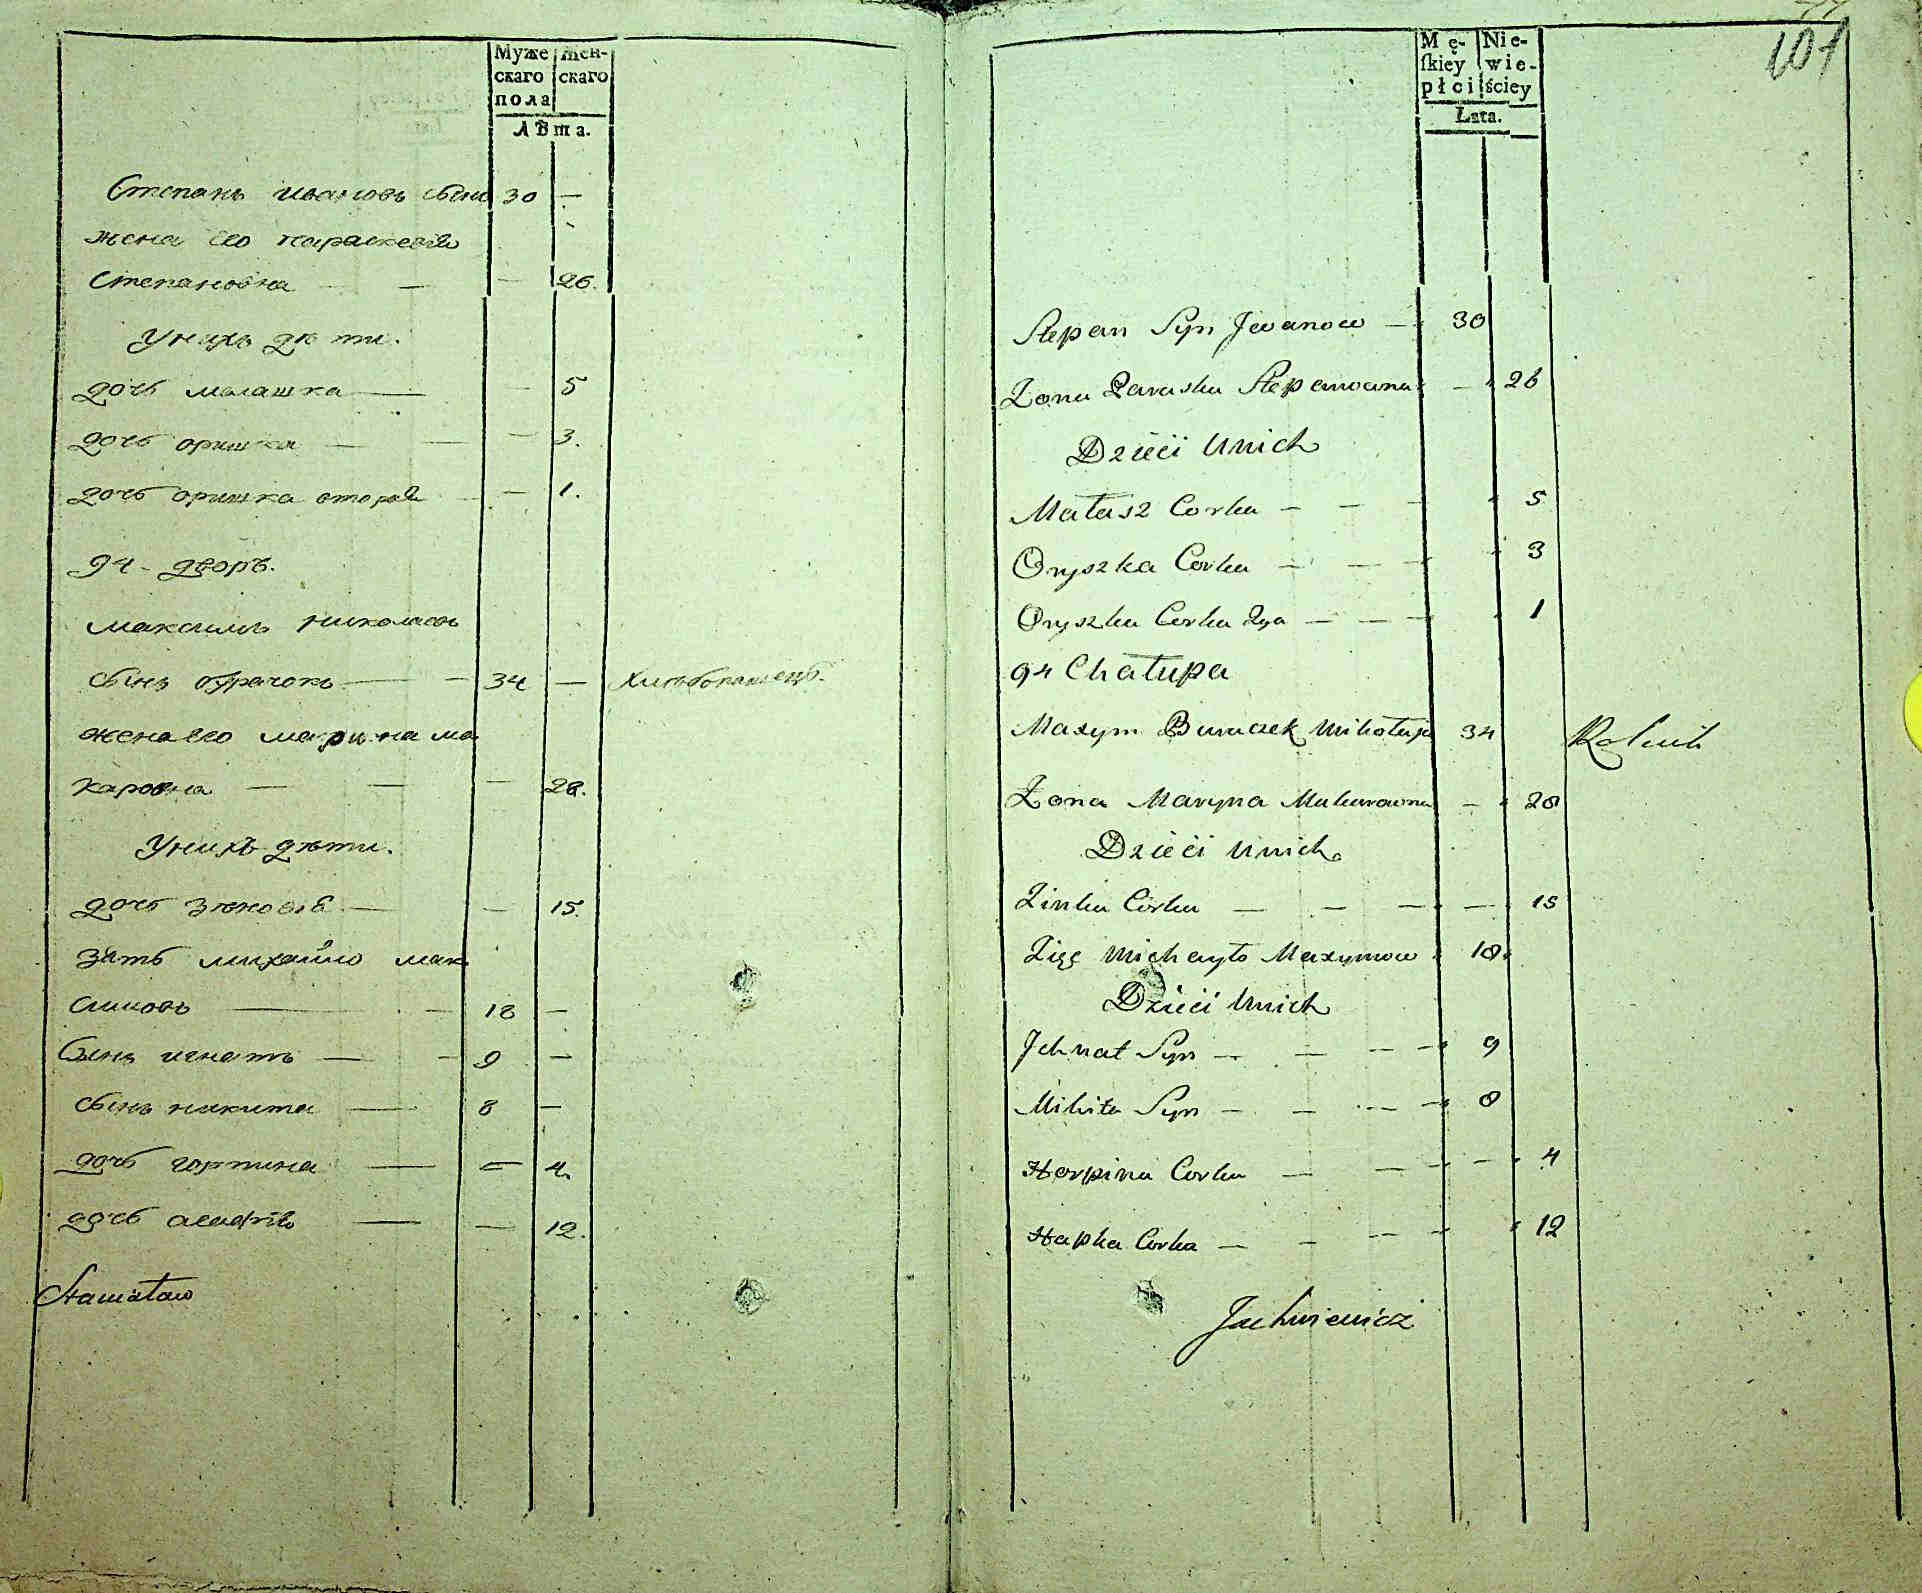 Муже
скаго
пола
Жен-
скаго
Лѣта.
Степанъ ивановъ сынъ 30 —
жена его параскевія
Степановна — — — 26.
Унихъ дѣти.
дочь малашка — — 5
дочь оришка — — — 3.
дочь оришка вторая — — 1.
94 - дворъ.
максимъ николаевъ
сынъ бурачокъ — — 34 — Хлѣбопашецъ.
жена его марина ма
каровна — — — 28.
Унихъ дѣти.
дочь зѣновія — — 15.
зять михайло мак
симовъ — — 18 —
Сынъ игнатъ — — 9 —
сынъ никита — 8 —
дочь горпина — — 4.
дочь агафія — — 12.
101
Mę-
ſkiey
płci
Nie-
wie-
ściey
Lata.
Stepan Syn Jwanow — 30
Zona Paraska Stepanowna — 26
Dzieci Unich
Małasz Corka — — — 5
Oryszka Corka — — — 3
Oryszka Corka 2ga — — — 1
94 Chałupa
Maxym Buraczek Mikołaja 34 Rolnik
Zona Maryna Makarowna — 28
Dzieci Unich
Zinka Corka — — — — 15
Zięć Michayło Maxymow 18
Dzieci Unich
Jchnat Syn — — — — 9
Mikita Syn — — — — 8
Horpina Corka — — — — 4
Hapka Corka — — — — 12
Jachniewicz